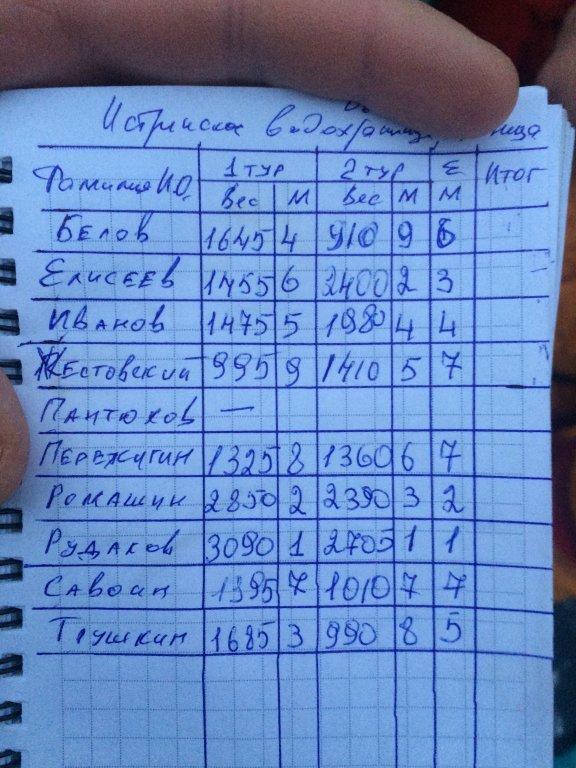 Истринское водохранилище
Фамилия И.О. 1 тур 2 тур Σ Итог
Вес М Вес М М
Белов 1645 4 910 9 6
Елисеев 1455 6 2400 2 3
Иванов 1475 5 1980 4 4
Жестовский 995 9 1410 5 7
Пантюхов —
Пережугин 1325 8 1360 6 7
Ромашин 2850 2 2390 3 2
Рудаков 3090 1 2705 1 1
Савоин 1395 7 1010 7 7
Трушкин 1685 3 990 8 5